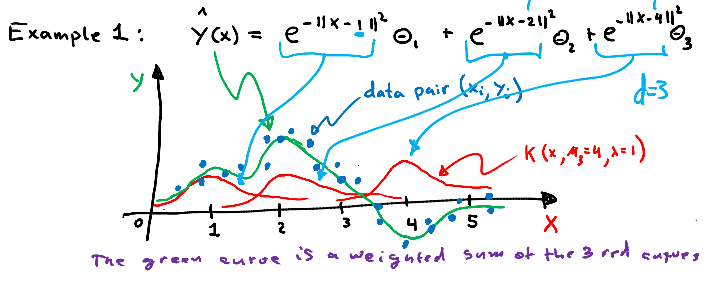 Example 1: ŷ(x) = e^{-||x-1||²} θ₁ + e^{-||x-2||²} θ₂ + e^{-||x-4||²} θ₃
y
data pair (xᵢ, yᵢ)
d=3
K(x, μ₃=4, λ=1)
0 1 2 3 4 5 x
The green curve is a weighted sum of the 3 red curves